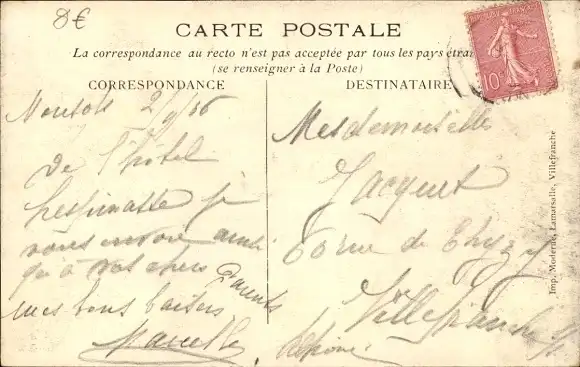 8€
CARTE POSTALE
La correspondance au recto n'est pas acceptée par tous les pays étran
(se renseigner à la Poste)
CORRESPONDANCE
DESTINATAIRE
10
de l'hôtel
je
vous envoie ainsi
qu'à vos chers Parents
mes bons baisers
Marcelle
Mesdemoiselles
Jacquet
60 rue de Thizy
Villefranche s/
Imp. Moderne, Lamarsalle, Villefranche